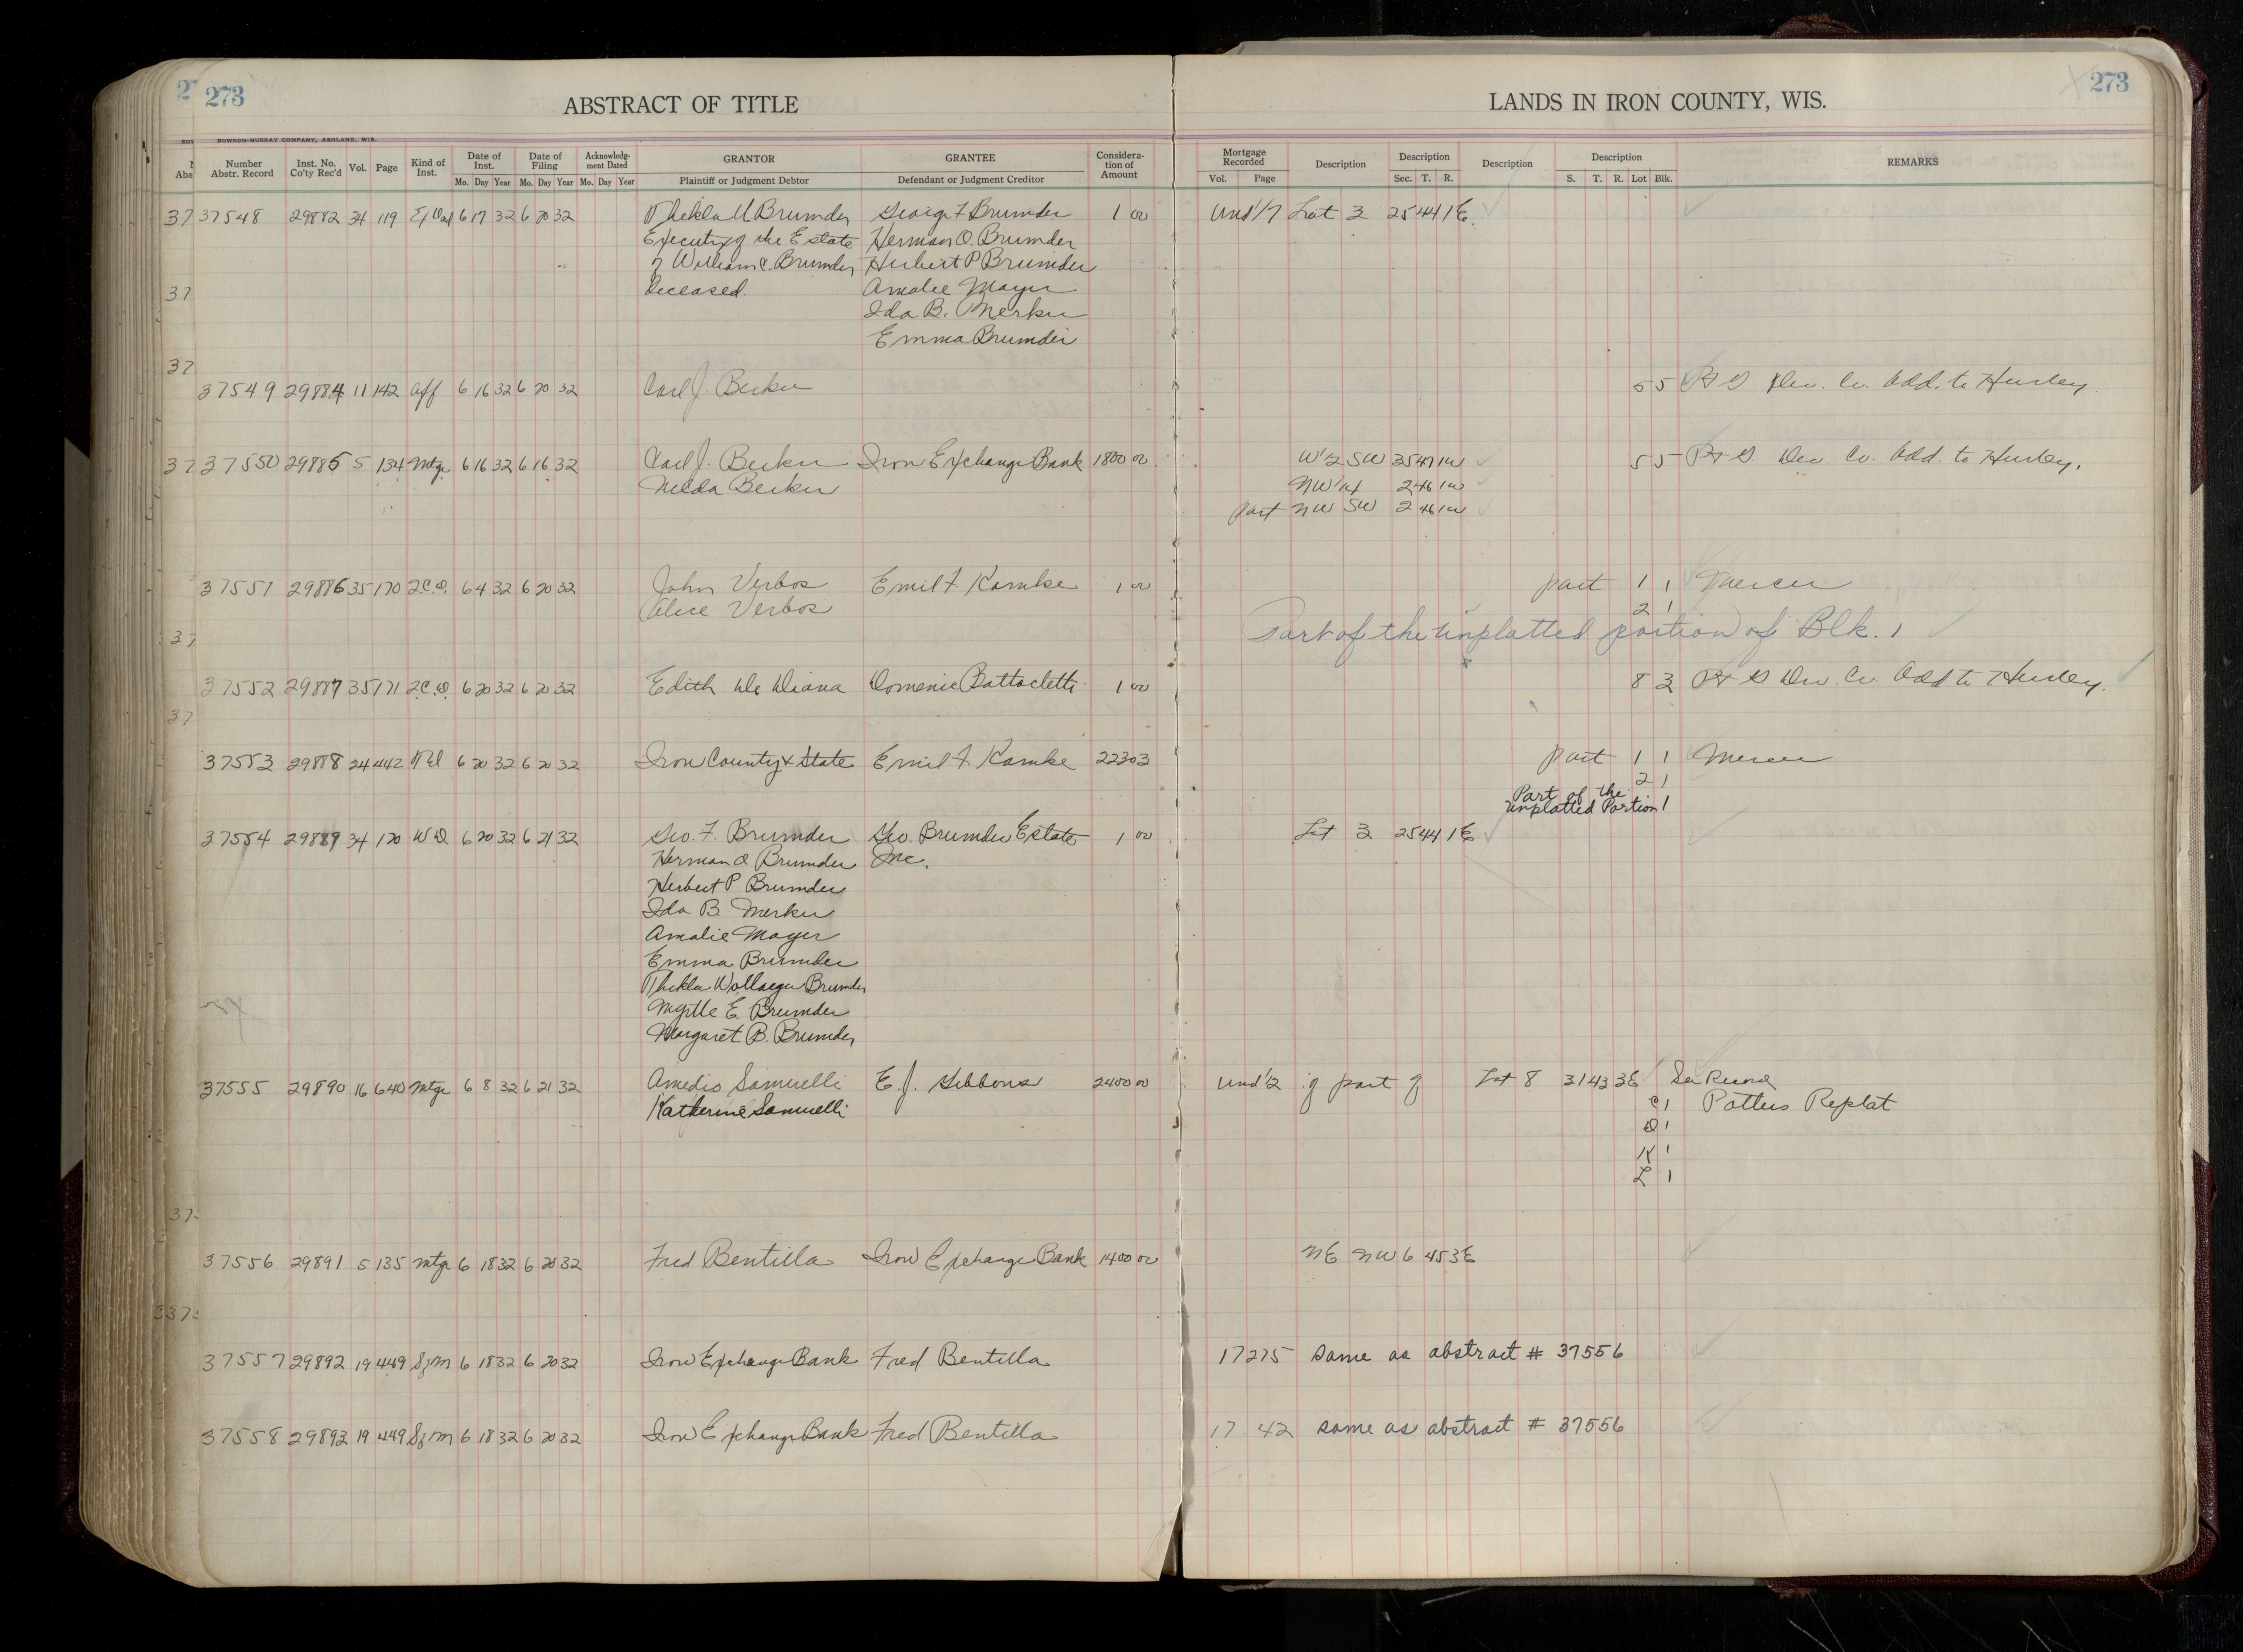 273
ABSTRACT OF TITLE
LANDS IN IRON COUNTY, WIS.
273
BOWRON-MURRAY COMPANY, ASHLAND, WIS.
Number Abstr. Record | Inst. No. Co'ty Rec'd | Vol. | Page | Kind of Inst. | Date of Inst. | Date of Filing | Acknowledgment Dated | GRANTOR | GRANTEE | Consideration of Amount | Mortgage Recorded | Description | Description | Description | Description | REMARKS
Mo. Day Year Mo. Day Year Mo. Day Year | Plaintiff or Judgment Debtor | Defendant or Judgment Creditor | Vol. | Page | Sec. T. R. | S. T. R. Lot Blk.
37548 29882 34 119 6 17 32 6 20 32 Thekla U Brumder George F Brumder 1 00 Und 1/7 Lot 3 25 44 1E
Executrix of the Estate Herman O. Brumder
of William C. Brumder, Herbert P Brumder
deceased. Amalie Mayer
Ida B. Merker
Emma Brumder
37549 29884 11 142 Aff 6 16 32 6 20 32 Carl J. Becker 5 5 Dev. Co. Add. to Hurley.
37550 29885 5 134 Mtge 6 16 32 6 16 32 Carl J. Becker Iron Exchange Bank 1800 00 W 1/2 SW 35 47 1W 5 5 Dev. Co. Add. to Hurley.
Becker NW 1/4 2 46 1W
part NW SW 2 46 1W
37551 29886 35 170 2.C.D. 6 4 32 6 20 32 John Verbos Emil F. Kamke 1 00 part 1 1 Mercer
Alice Verbos 2 1
Part of the unplatted portion of Blk. 1
37552 29887 35 171 2.C.D. 6 20 32 6 20 32 Edith De Diana Domenic Battocletti 1 00 8 3 Dev. Co. Add to Hurley.
37553 29888 24 442 6 20 32 6 20 32 Iron County & State Emil F. Kamke 223 03 part 1 1 Mercer
2 1
Part of the
unplatted Portion 1
37554 29889 34 120 W D 6 20 32 6 21 32 Geo. F. Brumder Geo. Brumder Estate 1 00 Lot 3 25 44 1E
Herman O Brumder Inc.
Herbert P Brumder
Ida B. Merker
Amalie Mayer
Emma Brumder
Thekla Wollaeger Brumder
Myrtle E. Brumder
Margaret B. Brumder
37555 29890 16 640 Mtge 6 8 32 6 21 32 Amedio Samuelli E. J. Gibbons 2400 00 Und 1/2 of part of Lot 8 31 43 3E See Record
Katherine Samuelli C 1 Potters Replat
D 1
K 1
L 1
37556 29891 5 135 Mtge 6 18 32 6 20 32 Fred Bentilla Iron Exchange Bank 1400 00 NE NW 6 45 3E
37557 29892 19 449 S of M 6 18 32 6 20 32 Iron Exchange Bank Fred Bentilla 17 275 same as abstract # 37556
37558 29893 19 449 S of M 6 18 32 6 20 32 Iron Exchange Bank Fred Bentilla 17 42 same as abstract # 37556